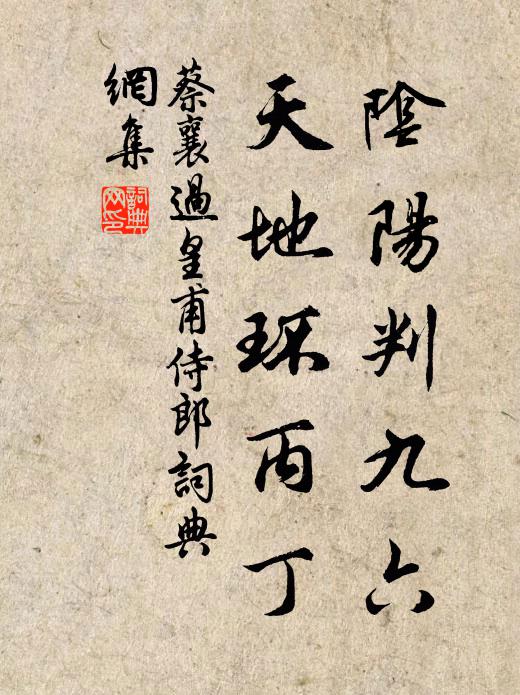 陰陽判九六
天地環丙丁
蔡襄過皇甫侍郎詞典
網集
詞典網印